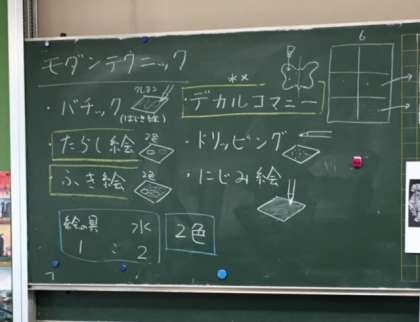 モダンテクニック
・バチック
クレヨン
(はじき絵)
・デカルコマニー
・たらし絵
2色
・ドリッピング
・ふき絵
2色
・にじみ絵
絵の具 水
1 : 2
2色
6